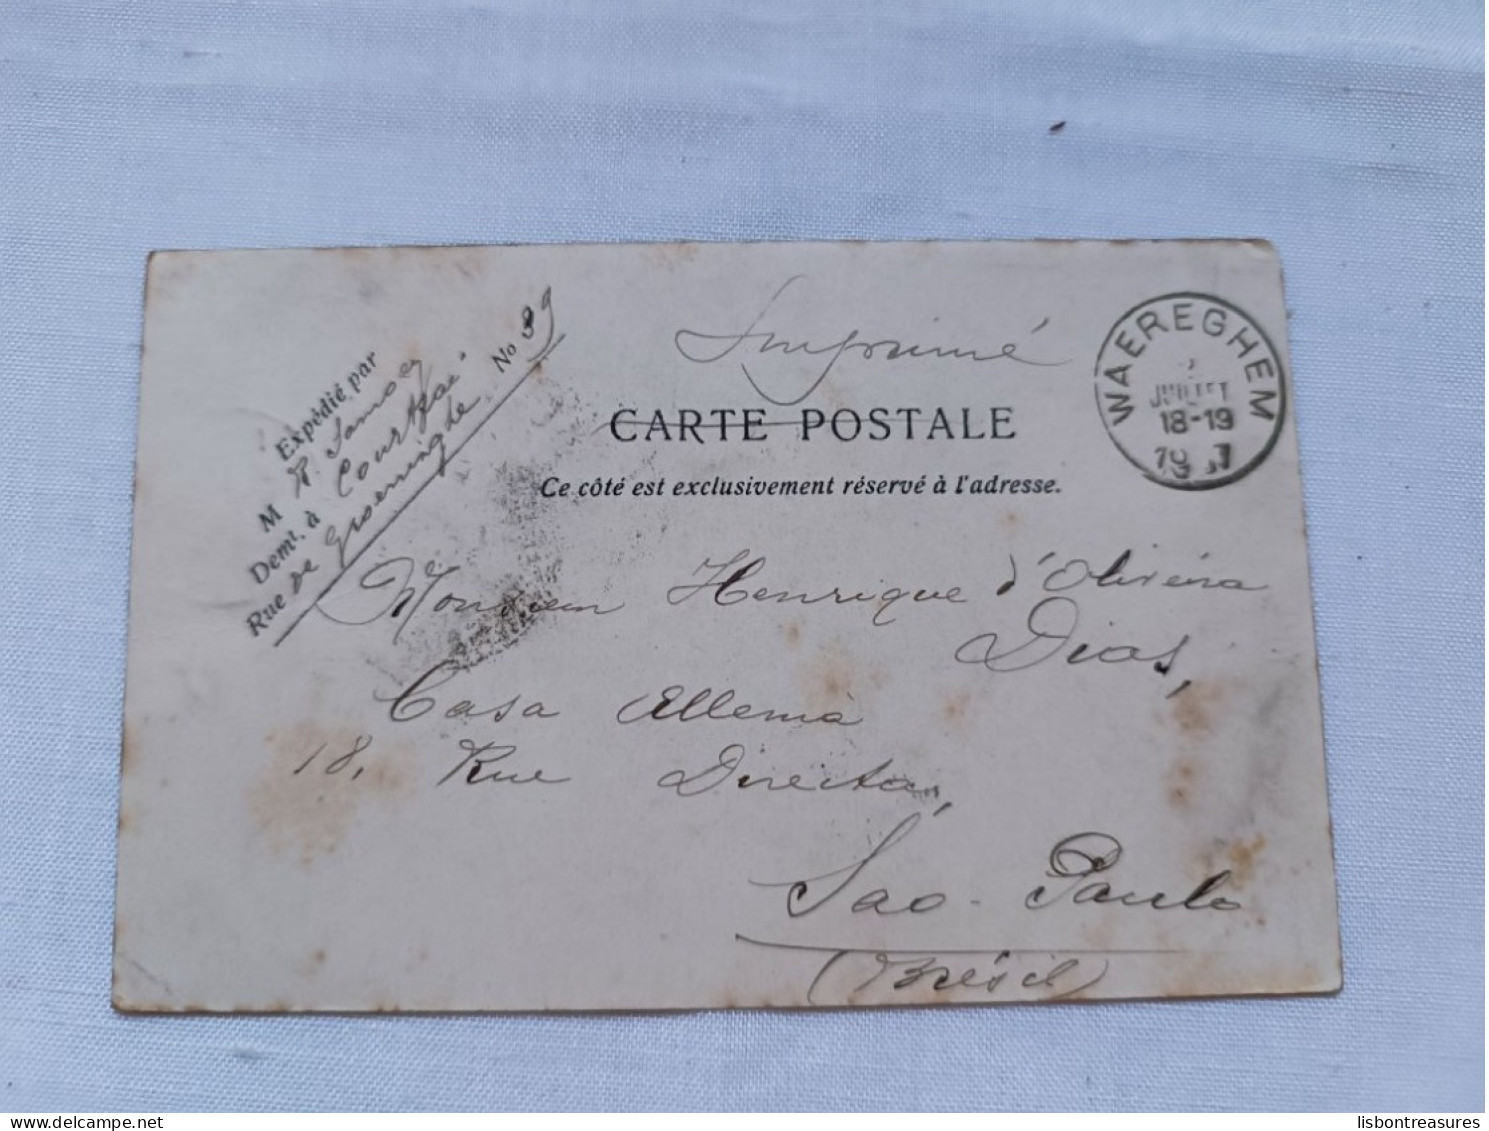 Expédié par
M
Demt. à Courtrai
Rue de Groeninghe No 39
Imprimé
CARTE POSTALE
Ce côté est exclusivement réservé à l'adresse.
WAEREGHEM
JUILLET
18-19
Monsieur Henrique d'Oliveira
Dias,
Casa Allemã
18, Rue Directa,
Sao-Paulo
(Brésil)
lisbontreasures